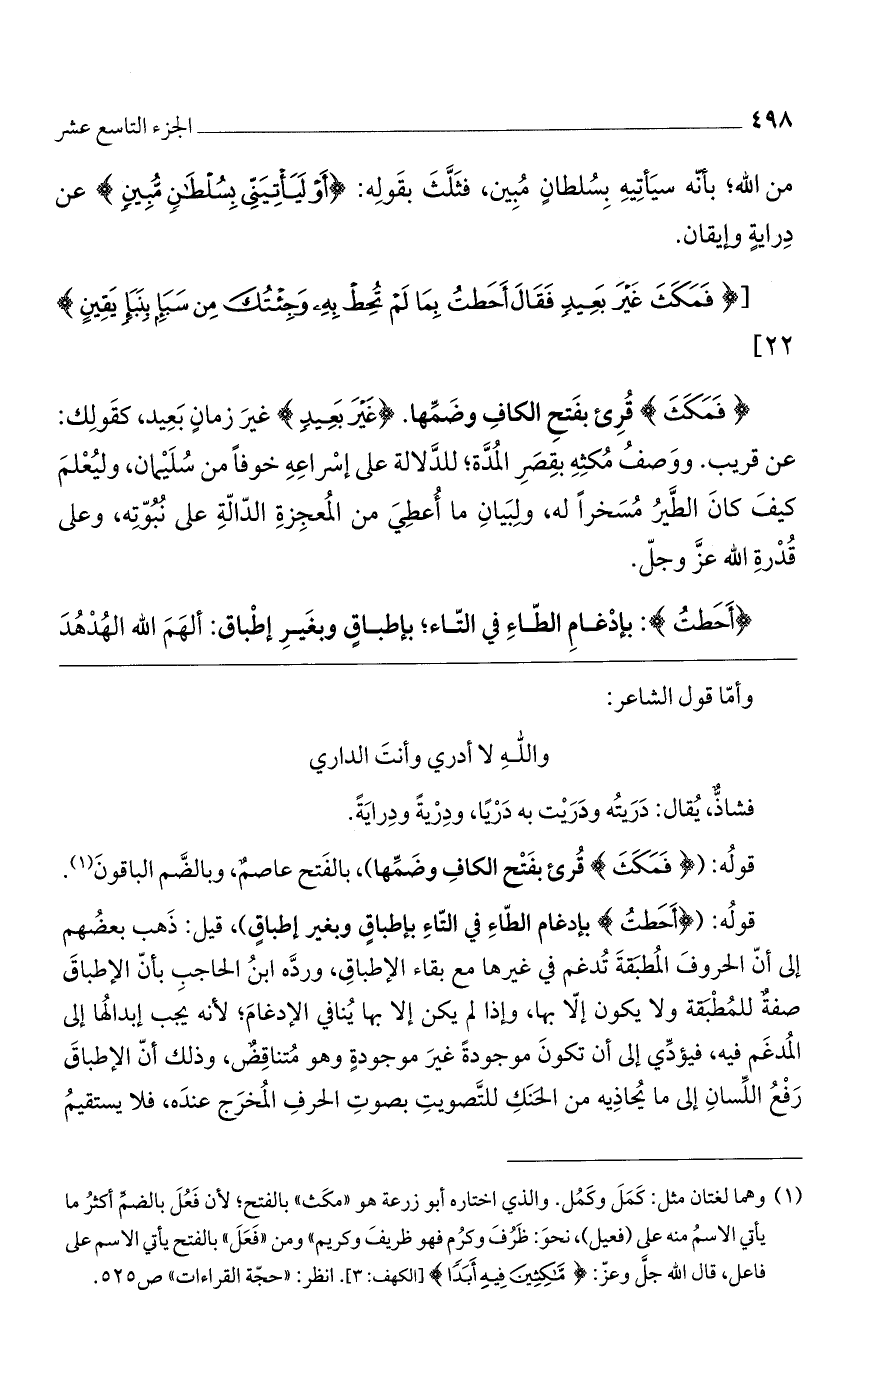 ٤٩٨ الجزء التاسع عشر
من الله؛ بأنّه سيَأتِيهِ بِسُلطانٍ مُبِين، فثَلَّثَ بقَولِه: ﴿أَوْ لَيَأْتِيَنِّي بِسُلْطَٰنٍ مُّبِينٍ﴾ عن
دِرايةٍ وإيقان.
[﴿فَمَكَثَ غَيْرَ بَعِيدٍ فَقَالَ أَحَطتُ بِمَا لَمْ تُحِطْ بِهِۦ وَجِئْتُكَ مِن سَبَإٍ بِنَبَإٍ يَقِينٍ﴾
٢٢]
﴿فَمَكَثَ﴾ قُرِئ بفَتحِ الكافِ وضَمِّها. ﴿غَيْرَ بَعِيدٍ﴾ غيرَ زمانٍ بَعِيد، كقَولِك:
عن قريب. ووَصفُ مُكثِهِ بقِصَرِ المُدَّة؛ للدَّلالة على إسْراعِهِ خوفاً من سُلَيْمان، وليُعْلمَ
كيفَ كانَ الطَّيرُ مُسَخراً له، ولِبَيانِ ما أُعطِيَ من المُعجِزةِ الدّالّةِ على نُبُوّتِه، وعلى
قُدْرةِ الله عزَّ وجلّ.
﴿أَحَطتُ﴾: بإدْغامِ الطّاءِ في التّاء؛ بإطباقٍ وبغَيرِ إطْباق: ألهَمَ الله الهُدْهُدَ
وأمّا قول الشاعر:
واللهِ لا أدري وأنتَ الداري
فشاذٌّ، يُقال: دَرَيتُه ودَرَيْت به دَرْيًا، ودِرْيةً ودِرايَةً.
قولُه: (﴿فَمَكَثَ﴾ قُرئ بفَتْح الكافِ وضَمِّها)، بالفَتح عاصمٌ، وبالضَّم الباقونَ(١).
قولُه: (﴿أَحَطتُ﴾ بإدغام الطّاءِ في التّاءِ بإطباقٍ وبغير إطباقٍ)، قيل: ذَهب بعضُهم
إلى أنّ الحروفَ المُطبَقةَ تُدغم في غيرها مع بقاء الإطباقِ، وردَّه ابنُ الحاجبِ بأنّ الإطباقَ
صفةٌ للمُطْبَقة ولا يكون إلّا بها، وإذا لم يكن إلا بها يُنافي الإدغامَ؛ لأنه يجب إبدالُها إلى
المُدغَم فيه، فيؤدِّي إلى أن تكونَ موجودةً غيرَ موجودةٍ وهو مُتناقِضٌ، وذلك أنّ الإطباقَ
رَفْعُ اللِّسانِ إلى ما يُحاذِيه من الحَنَكِ للتَّصويتِ بصوتِ الحرفِ المُخرَج عندَه، فلا يستقيمُ
(١) وهما لغتان مثل: كَمَلَ وكَمُل. والذي اختاره أبو زرعة هو «مكَث» بالفتح؛ لأن فَعُلَ بالضمِّ أكثرُ ما
يأتي الاسمُ منه على (فعيل)، نحوَ: ظَرُفَ وكرُم فهو ظريفَ وكريم» ومن «فَعَلَ» بالفتح يأتي الاسم على
فاعل، قال الله جلَّ وعزّ: ﴿مَّٰكِثِينَ فِيهِ أَبَدًا﴾ [الكهف: ٣]. انظر: «حجّة القراءات» ص٥٢٥.